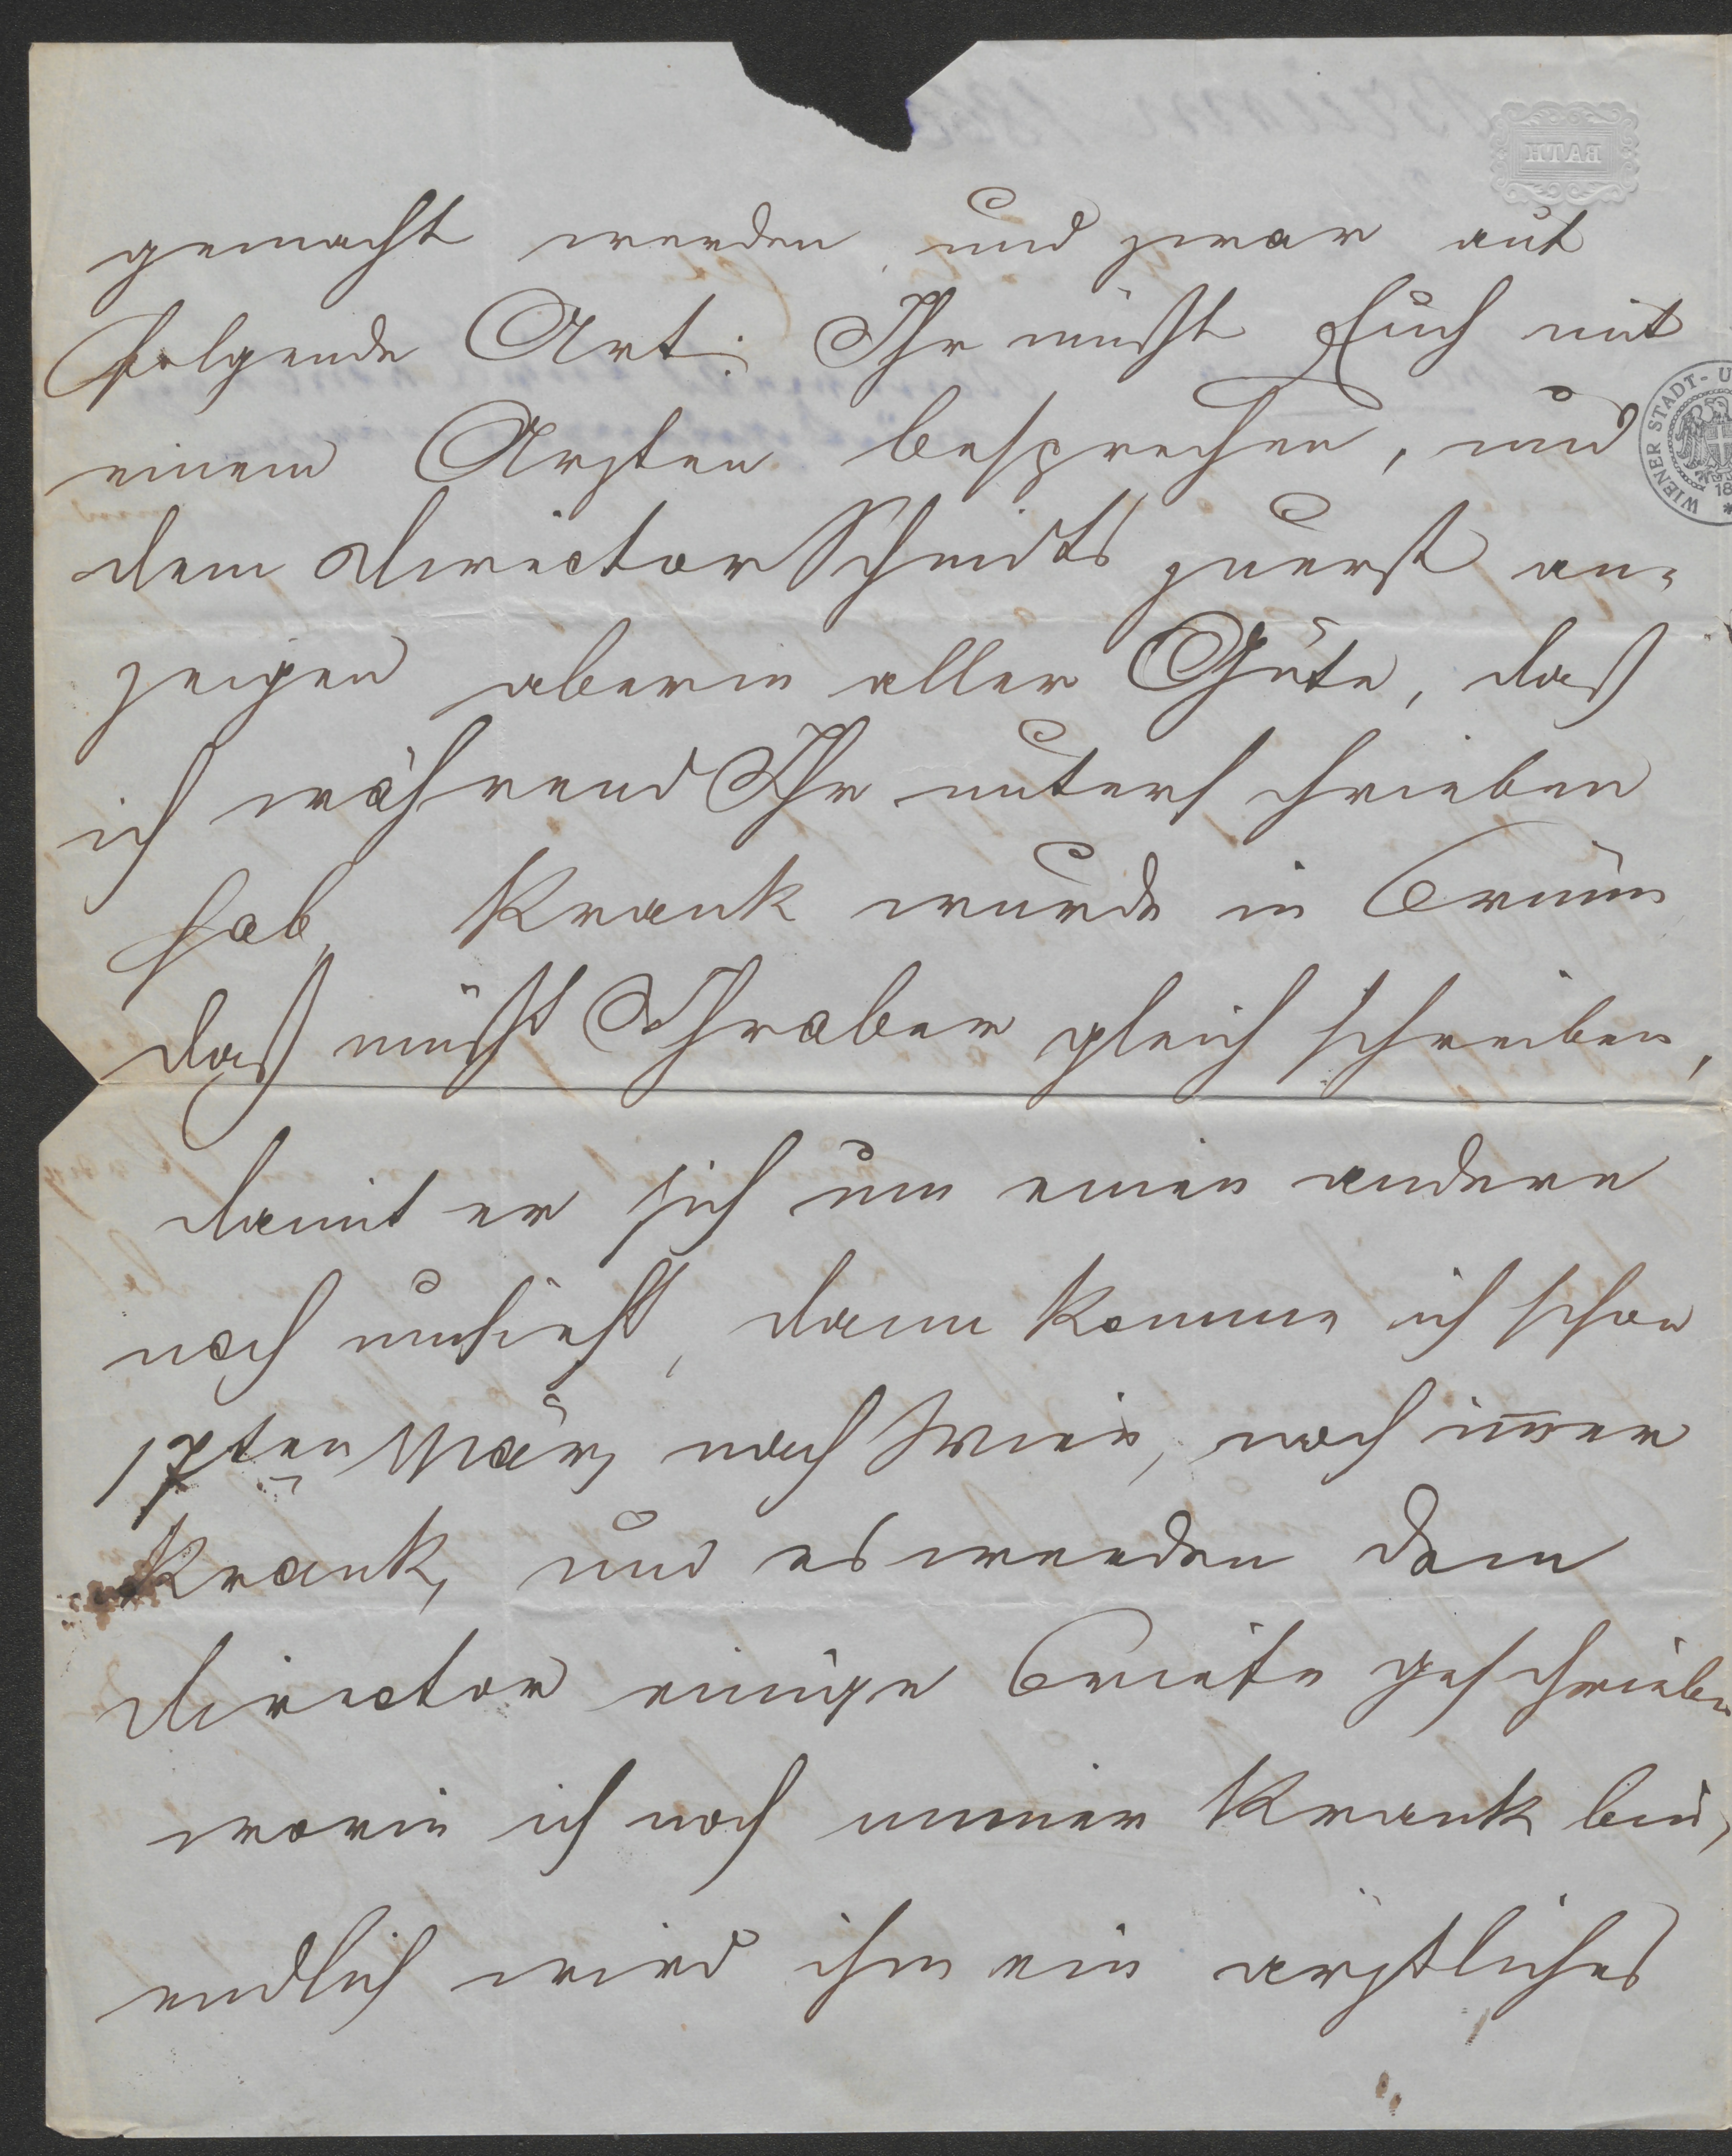 BATH
gemacht werden und zwar auf
folgende Art: Ihr müßt Euch mit
einem Arzten besprechen, und
dem Director Schmidts zuerst an-
zeigen aber in aller Güte, daß
ich während Ihr unterschrieben
hab, Krank wurde in Brünn
daß müßt Ihr aber gleich schreiben,
damit er sich um einen andern
noch umsieht, dann komme ich schon
17ten März nach Wien, noch immer
Krank, und es werden dem
Director einige Briefe geschrieben
worin ich noch immer Krank bin,
endlich wird ihm ein ärztliches
WIENER STADT- U
18